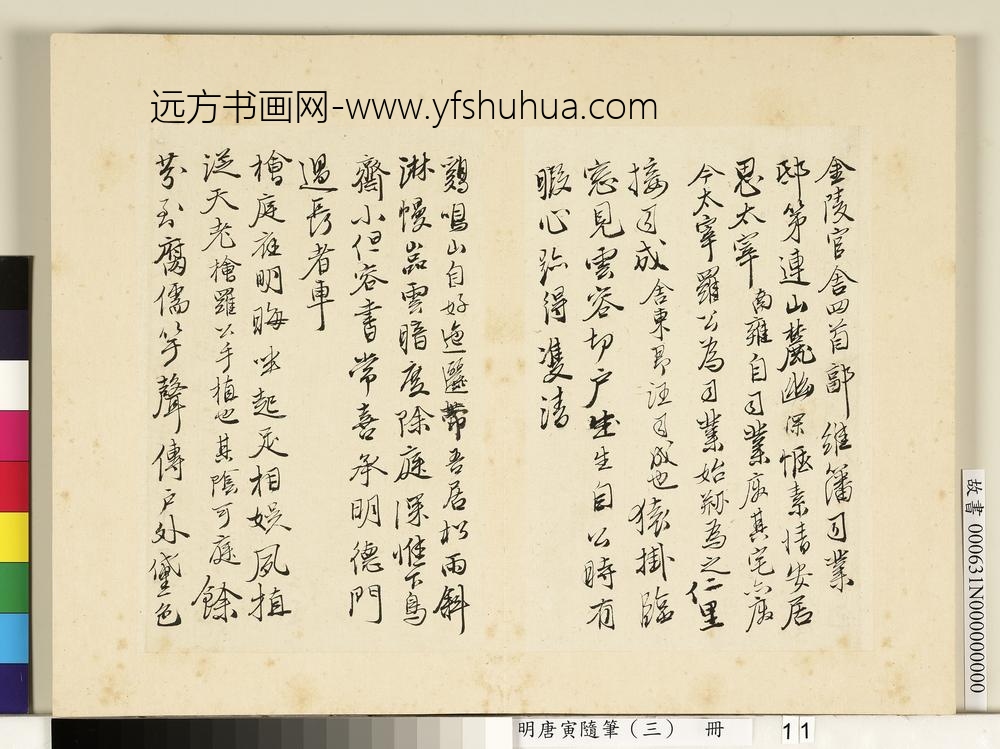 远方书画网-www.yfshuhua.com
金陵官舍四首 郭維籓司業
邸第連山麓幽深愜素情安居
思太宰南雍自司業廢其宅六廢
今太宰羅公為司業始剏為之仁里
接司成舍東即汪司成也猿掛臨
窓見雲容切戶生生自公時有
暇心跡得雙清
鷄鳴山自好迤邐帶吾居松雨斜
淋幔嵓雲暗度除庭深惟下鳥
齋小但容書常喜承明德門
過長者車
檜庭庭明晦坐起足相娛夙植
從天老檜羅公手植也其陰可庭餘
芬到腐儒竽聲傳戶外黛色
故書 000631N000000000
明唐寅隨筆（三） 冊 11